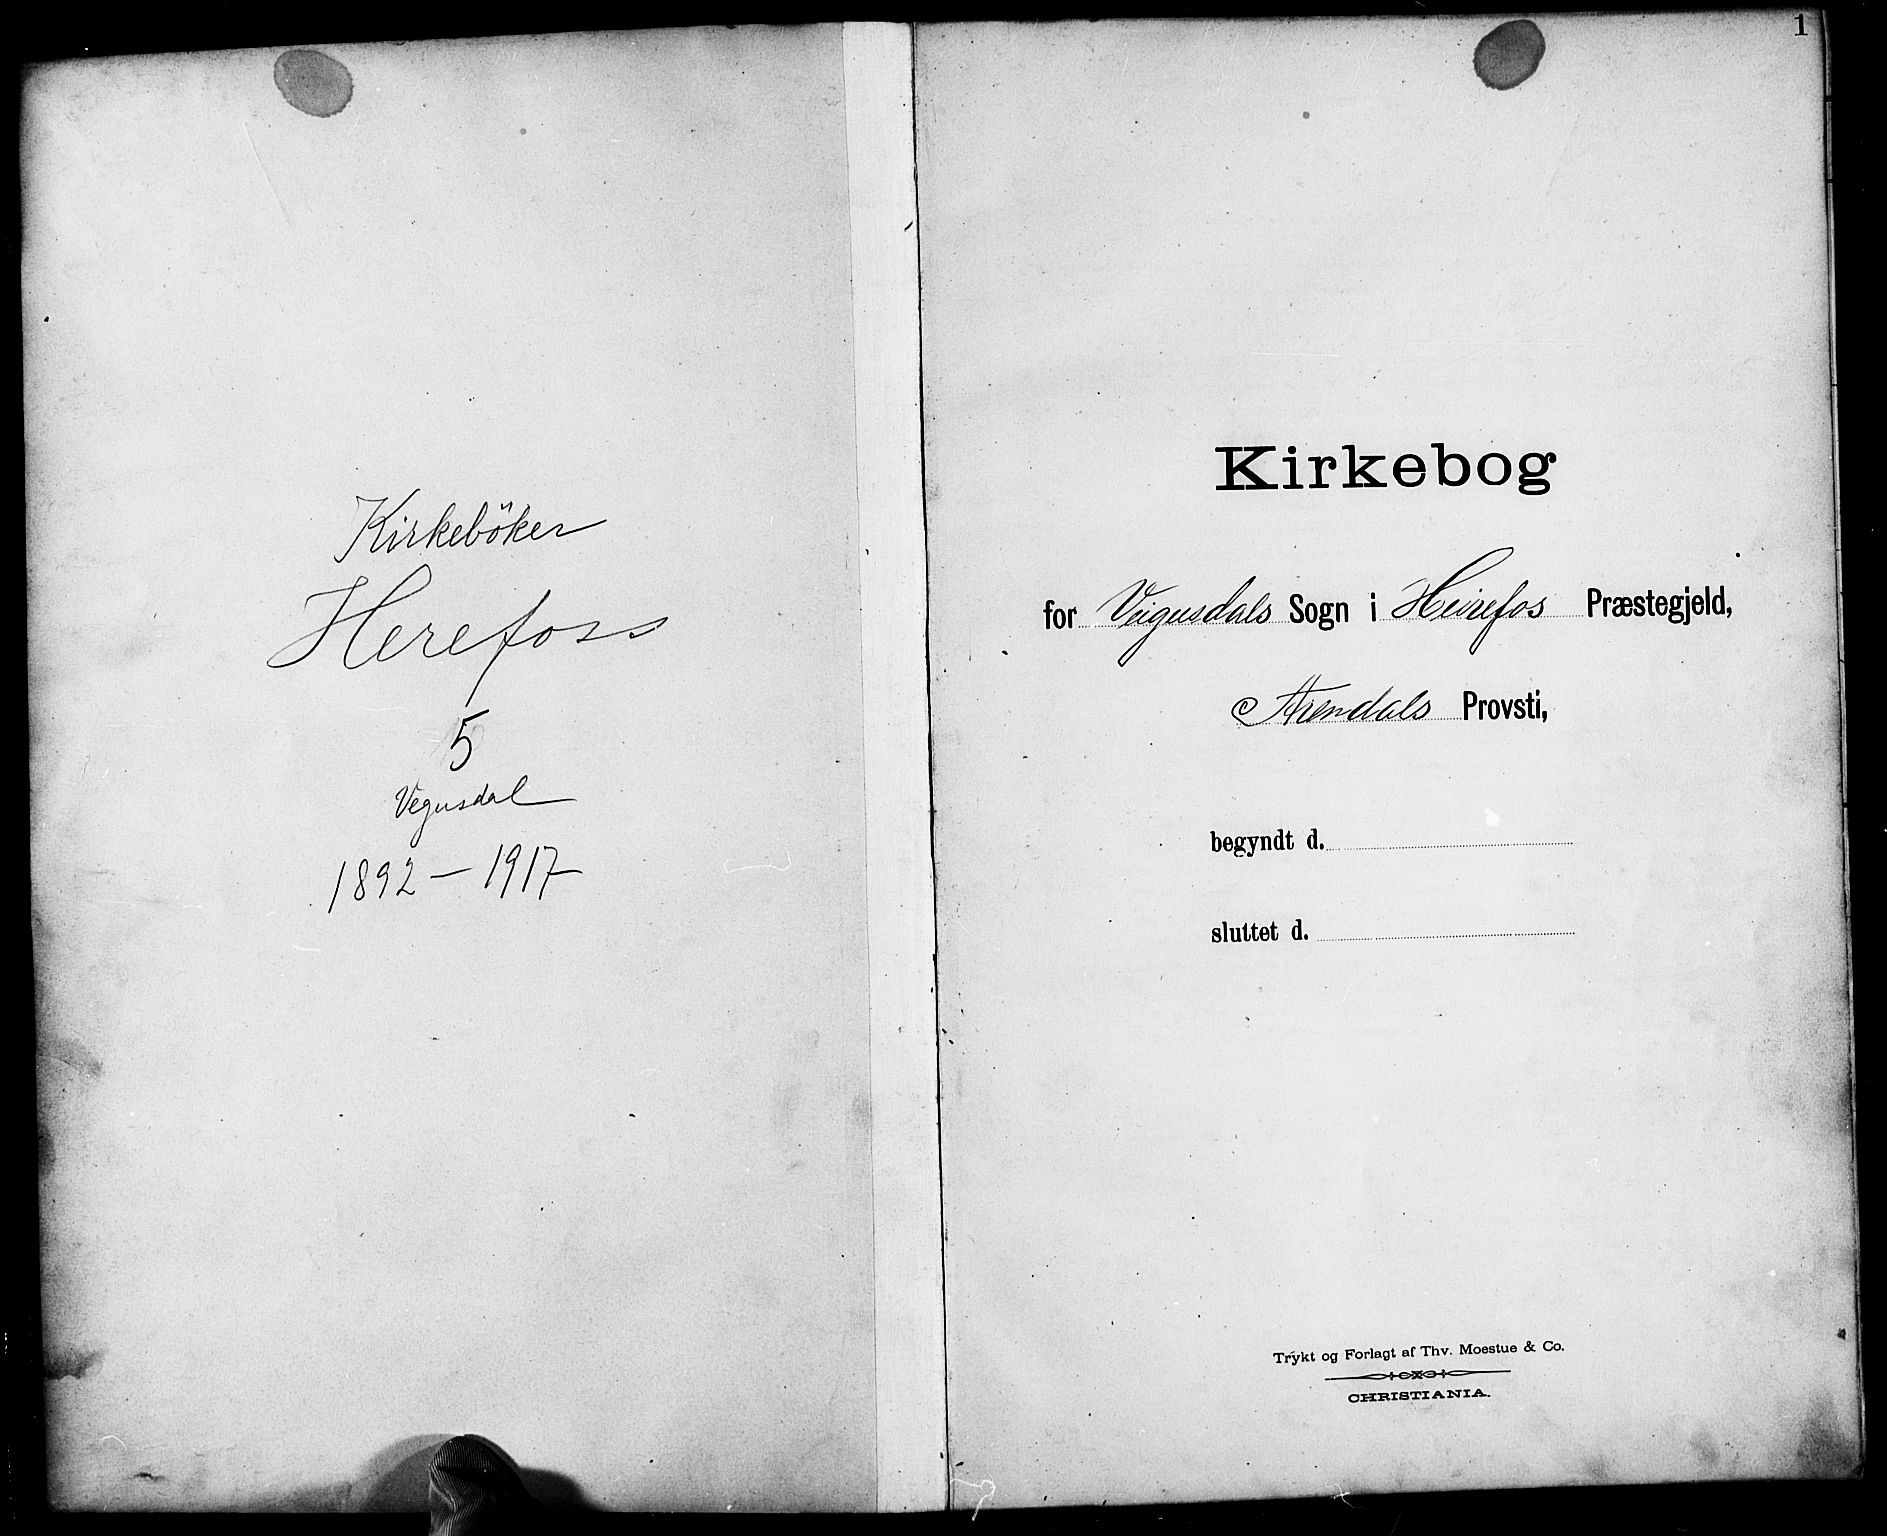 Kirkeböker
Herefoss
5
Vegusdal
1892 — 1917
1
Kirkebog
for Veigusdals Sogn i Heirefos Præstegjeld,
Arendals Provsti,
begyndt d.
sluttet d.
Trykt og Forlagt af Thv. Moestue & Co.
CHRISTIANIA.